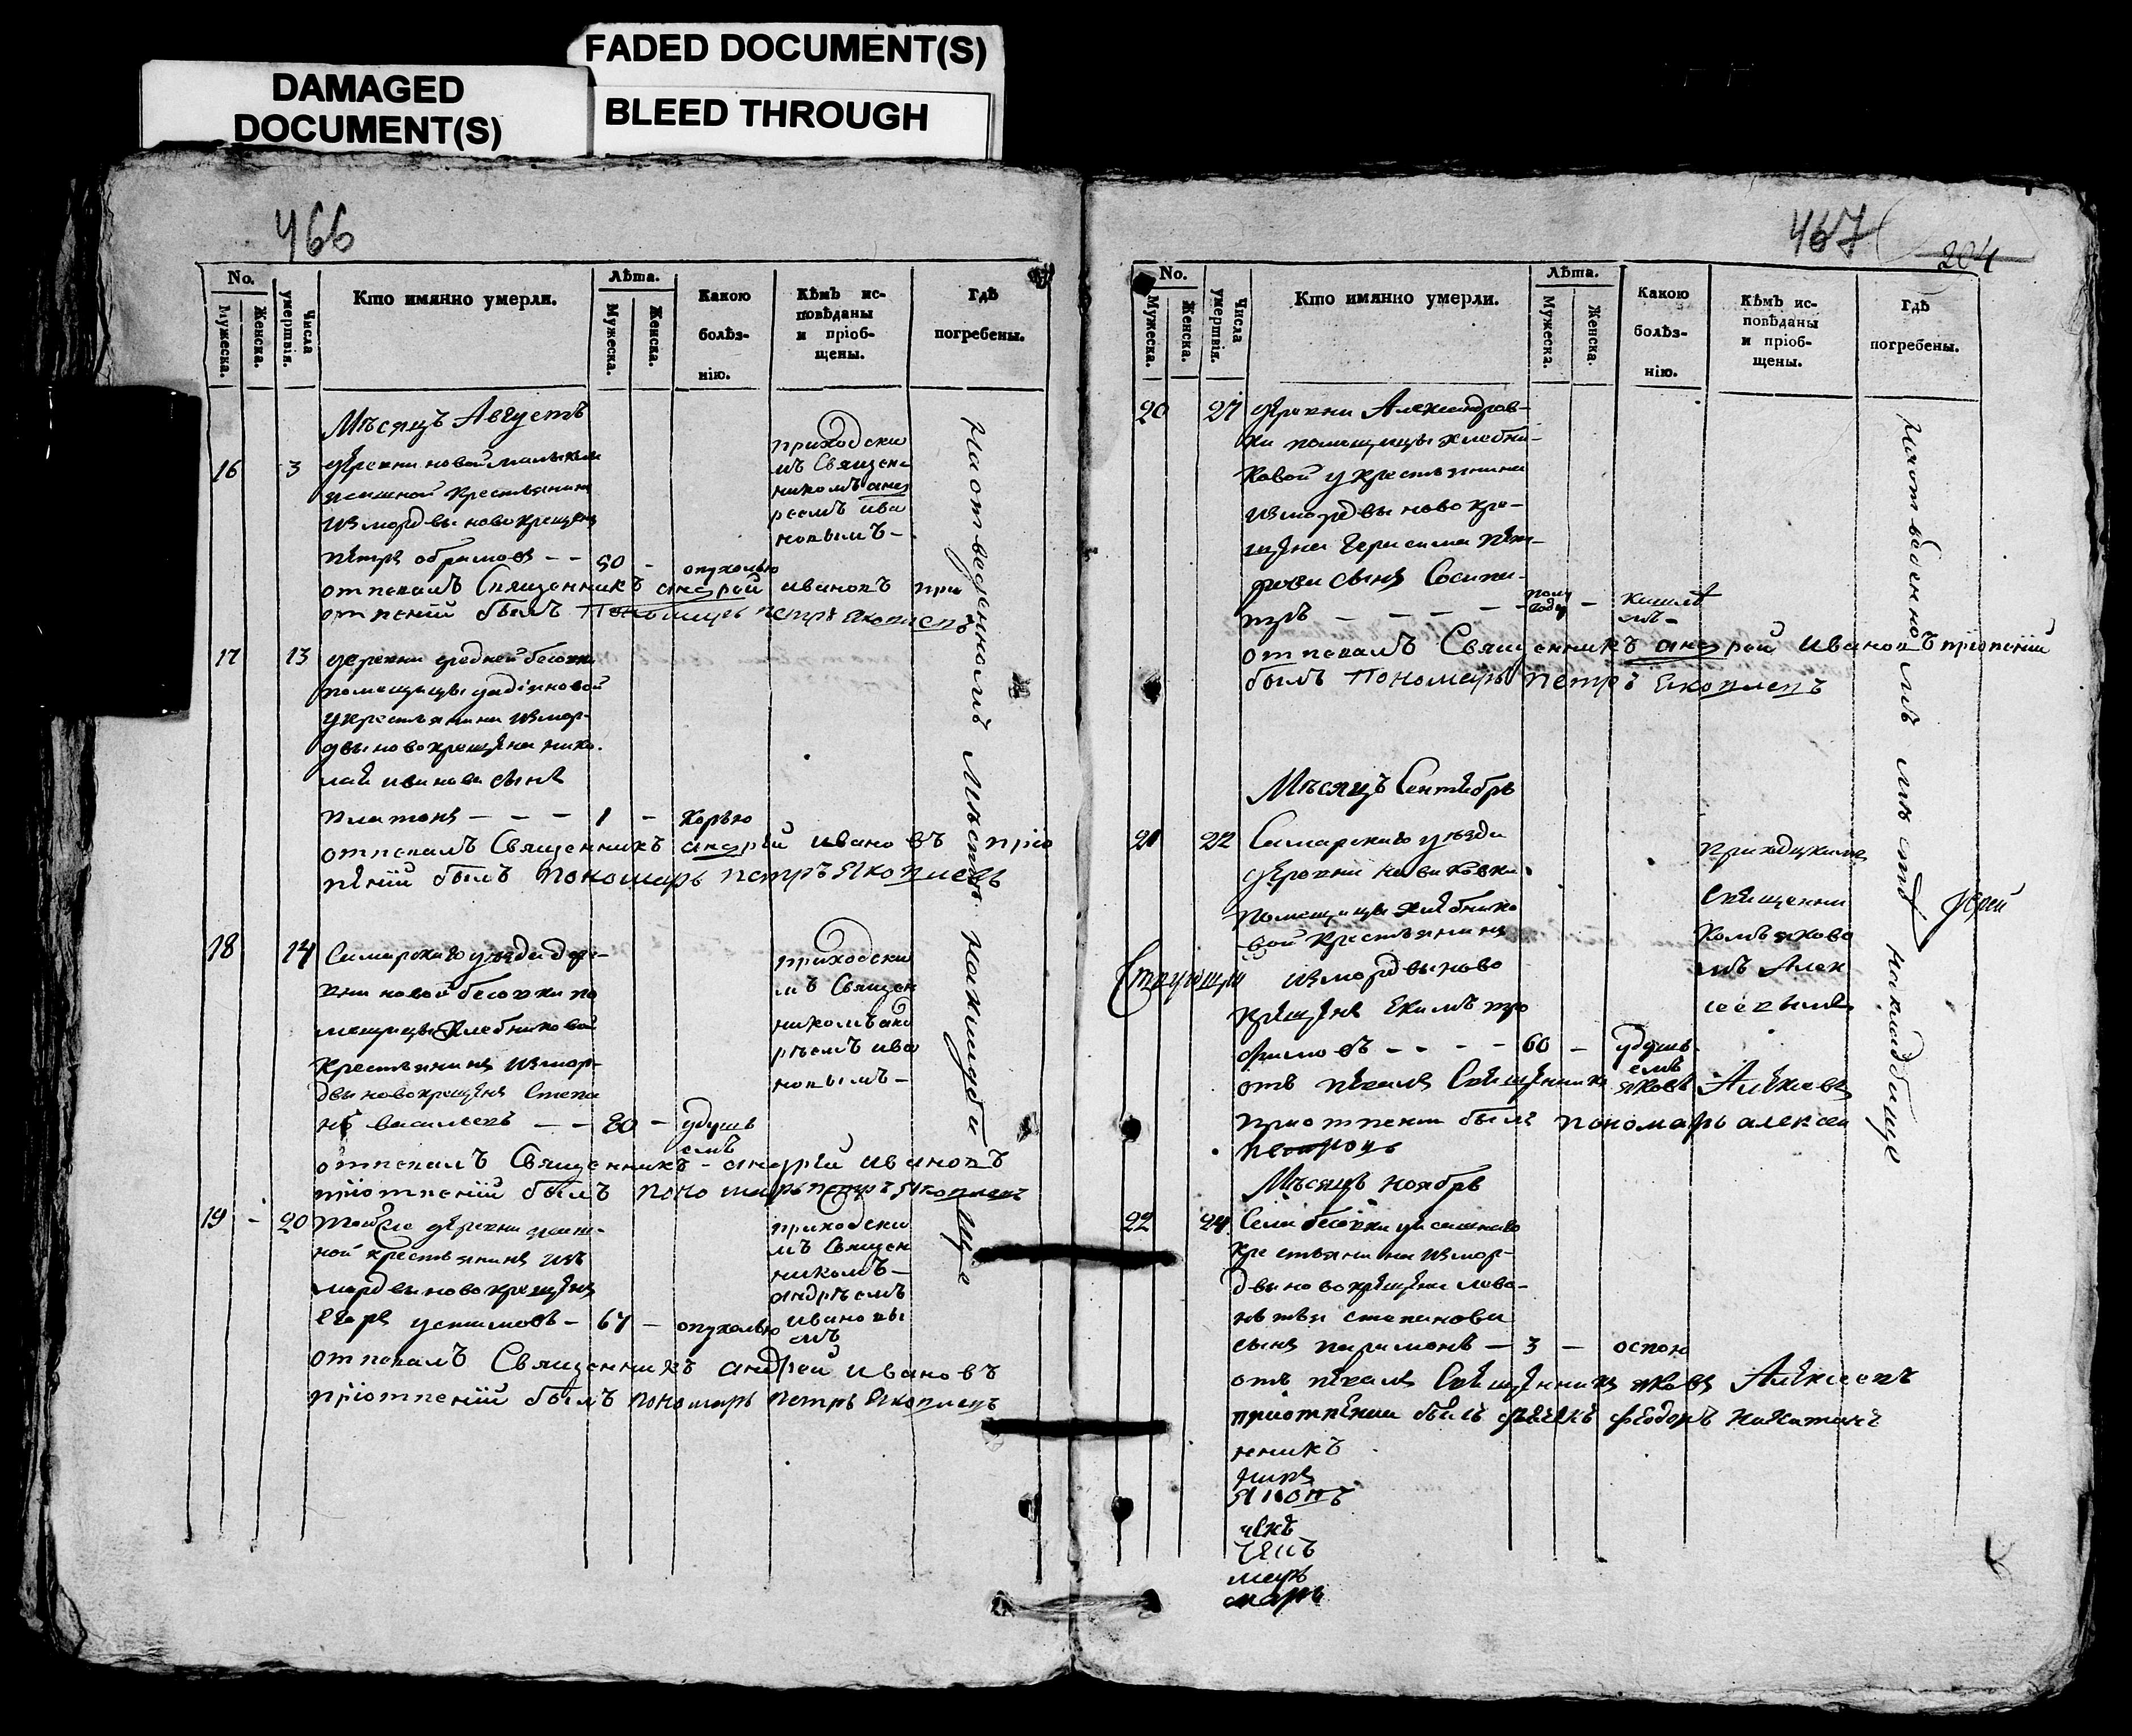 FADED DOCUMENT(S)
DAMAGED
DOCUMENT(S)
BLEED THROUGH
466
No.
Мужеска.
Женска.
Числа умертвія.
Кто имянно умерли.
Лѣта.
Мужеска.
Женска.
Какою
болѣз-
нію.
Кѣмъ ис-
повѣданы
и пріоб-
щены.
Гдѣ
погребены.
Мѣсяцъ Августъ
16 3 деревни новой
ясашной крестьянинъ
из мордвы новокрещенъ
петръ обрамовъ - - 50 - опухолью
приходски
мъ Священ
никомъ анд
реемъ ива
новымъ -
отпевалъ Священникъ андрей ивановъ при
отпении былъ Пономарь петръ Яковлевъ
17 13 деревни средней бесовки
помещицы
у крестьянина из мор-
двы новокрещена нико-
лая иванова сынъ
платонъ - - - 1 - корью
отпевалъ Священникъ андрей ивановъ прio
пѣнiи былъ пономарь петръ Яковлевъ
18 14 Самарскаго уезда дере-
вни новой бесовки по
мещицы Хлебниковой
крестьянинъ из мор-
двы новокрещенъ Степа
нъ васильевъ - - 80 - удушь
емъ
приходски
мъ Священ
никомъ анд
реемъ ива
новымъ -
отпевалъ Священникъ - андрей ивановъ
прiотпенiи былъ пономарь петръ Яковлевъ
19 - 20 тойже деревни ясаш-
ной крестьянинъ изъ
мордвы новокрещенъ
Егоръ устимовъ - 67 - опухолью
приходски
мъ Священ
никомъ -
андреемъ
ивановы
мъ
отпевалъ Священникъ андрей ивановъ
прiотпенiи былъ пономарь петръ Яковлевъ
На отведенномъ мѣстѣ на кладбище
467
204
No.
Мужеска.
Женска.
Числа умертвія.
Кто имянно умерли.
Лѣта.
Мужеска.
Женска.
Какою
болѣз-
нію.
Кѣмъ ис-
повѣданы
и пріоб-
щены.
Гдѣ
погребены.
20 27 деревни Александров-
ки помещицы хлебни-
ковой у крестьянина
из мордвы новокре-
щена Герасима пет-
рова сынъ Сосипа-
тръ - - - - полу
года -
отпевалъ Священникъ андрей Ивановъ прiопенiи
былъ Пономарь петръ Яковлевъ
Мѣсяцъ Сентябрь
21 22 Самарскаго уезда
деревни новиковки
помещицы хлебнико
вой крестьянинъ
из мордвы ново
крещенъ Екимъ тро
фимовъ - - - - 60 - удушь
емъ
приходскимъ
Священни
комъ яково
мъ Алек
сеевымъ
отъ певалъ Священникъ яковъ Алексеевъ
приотпении былъ пономарь алексеи
петровъ
Мѣсяцъ ноябрь
22 24 Села бесовки ясашнаго
крестьянина из мор-
двы новокрещена
степанова
сынъ парамонъ - 3 - оспою
отъ певалъ Священникъ яковъ Алексеевъ
приотпении былъ феодоръ
нникъ
чекъ
марь
марь
На отведенномъ мѣстѣ на кладбище